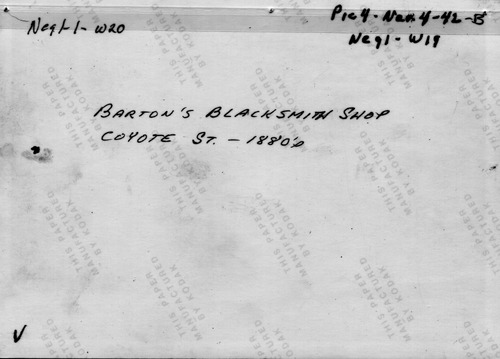 Neg1-1- W20
Pic4 - Nev. 4-42-B
Neg1 - W19
BARTON'S BLACKSMITH SHOP
COYOTE ST. - 1880's
V
THIS PAPER
MANUFACTURED
BY KODAK